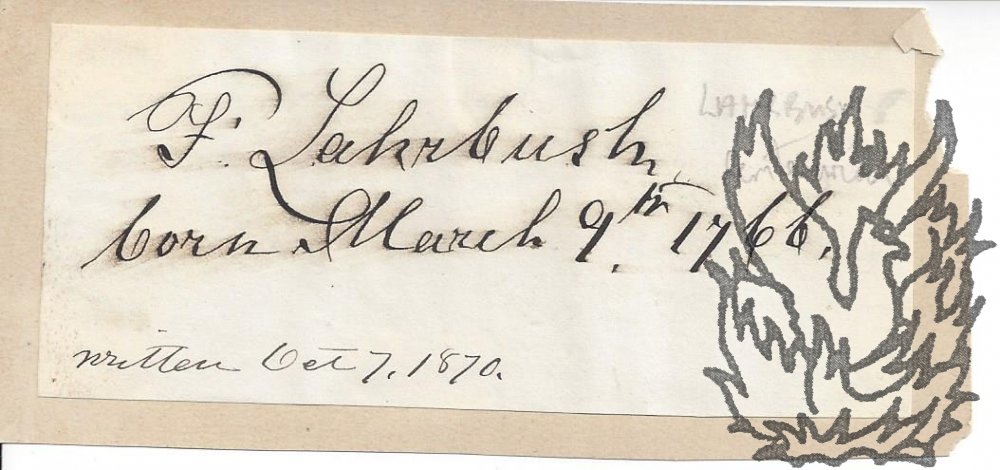 F. Lahrbush
born March 9th, 1766.
written Oct 7, 1870.
LAHRBUSH